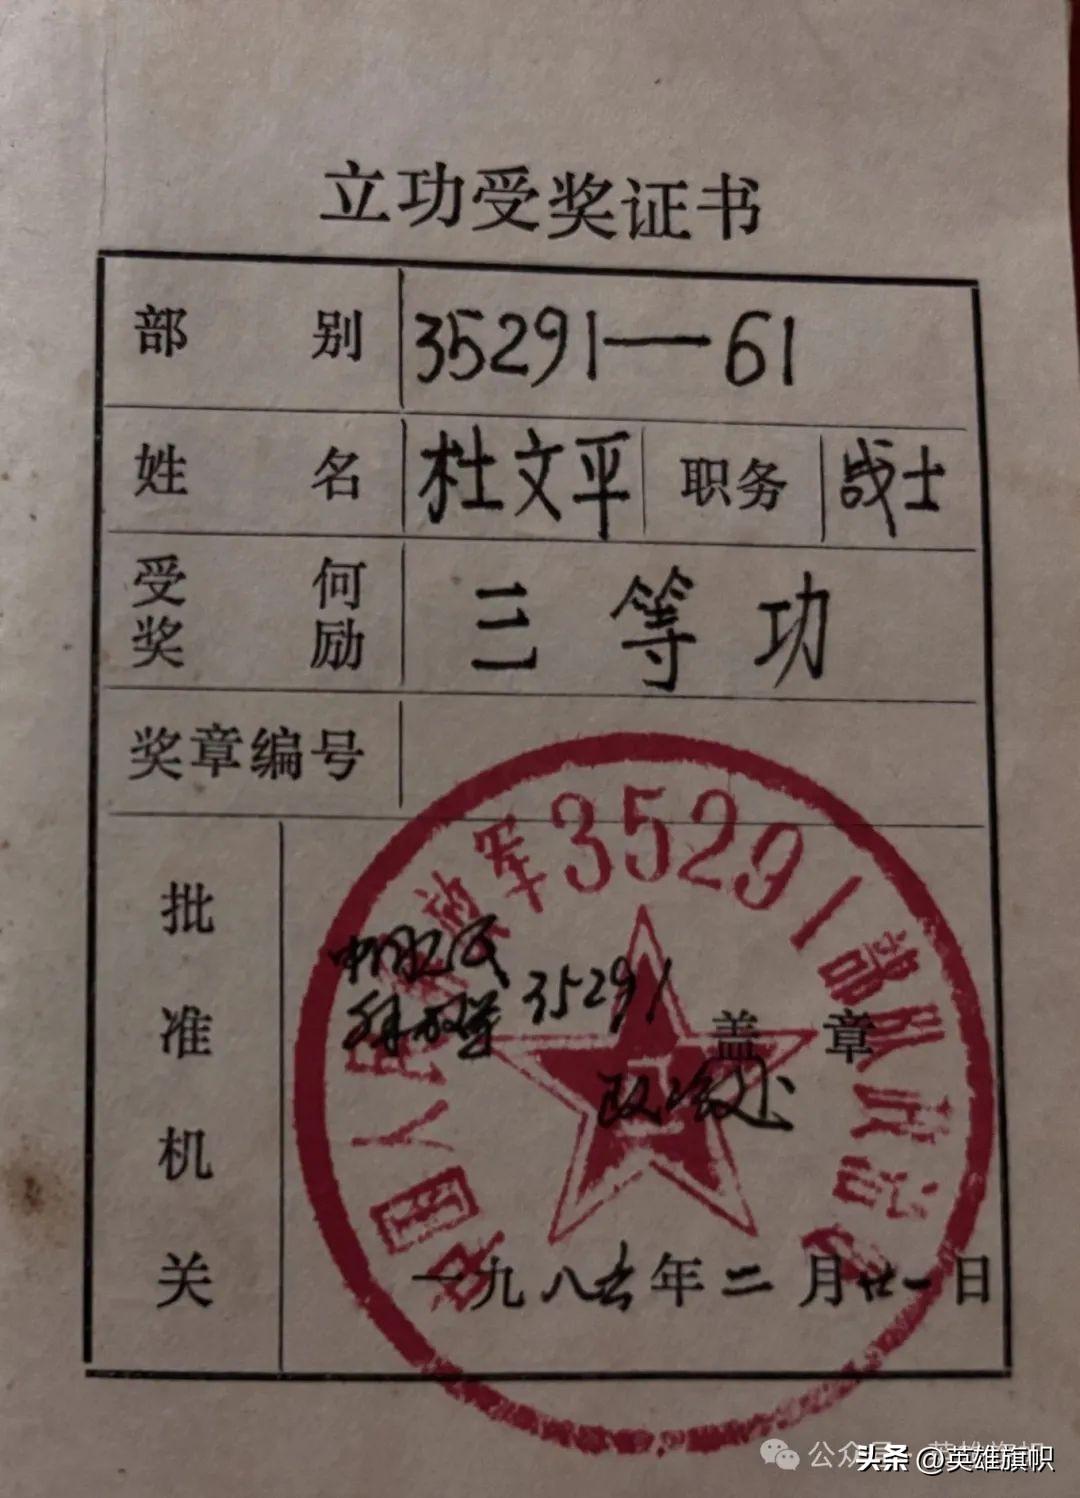 立功受奖证书
部别 35291—61
姓名 杜文平 职务 战士
受何奖励 三等功
奖章编号
批准机关
中国人民解放军35291部队政治处
中国人民
解放军 35291
盖章
政治处
一九八六年二月廿一日
公众号·英雄旗帜
头条 @英雄旗帜